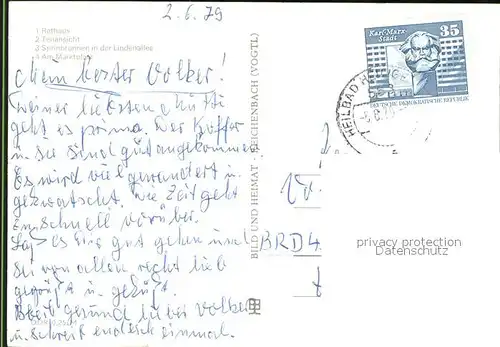 2.6.79
1 Rathaus
2 Teilansicht
3 Springbrunnen in der Lindenallee
4 Am Marktplatz
Mein bester Volker!
Deiner liebsten Mutti
geht es prima. Der Koffer
u. sie sind gut angekommen.
Es wird viel gewandert u.
gequatscht, die Zeit geht
schnell vorüber.
Laß es Dir gut gehen und
sei von allen recht lieb
gegrüßt u. geküßt.
Bleib gesund lieber Volker
u. schreib endlich einmal.
BILD UND HEIMAT REICHENBACH (VOGTL)
Karl-Marx-
Stadt
35
DEUTSCHE DEMOKRATISCHE REPUBLIK
HEILBAD
BRD 4
privacy protection
Datenschutz